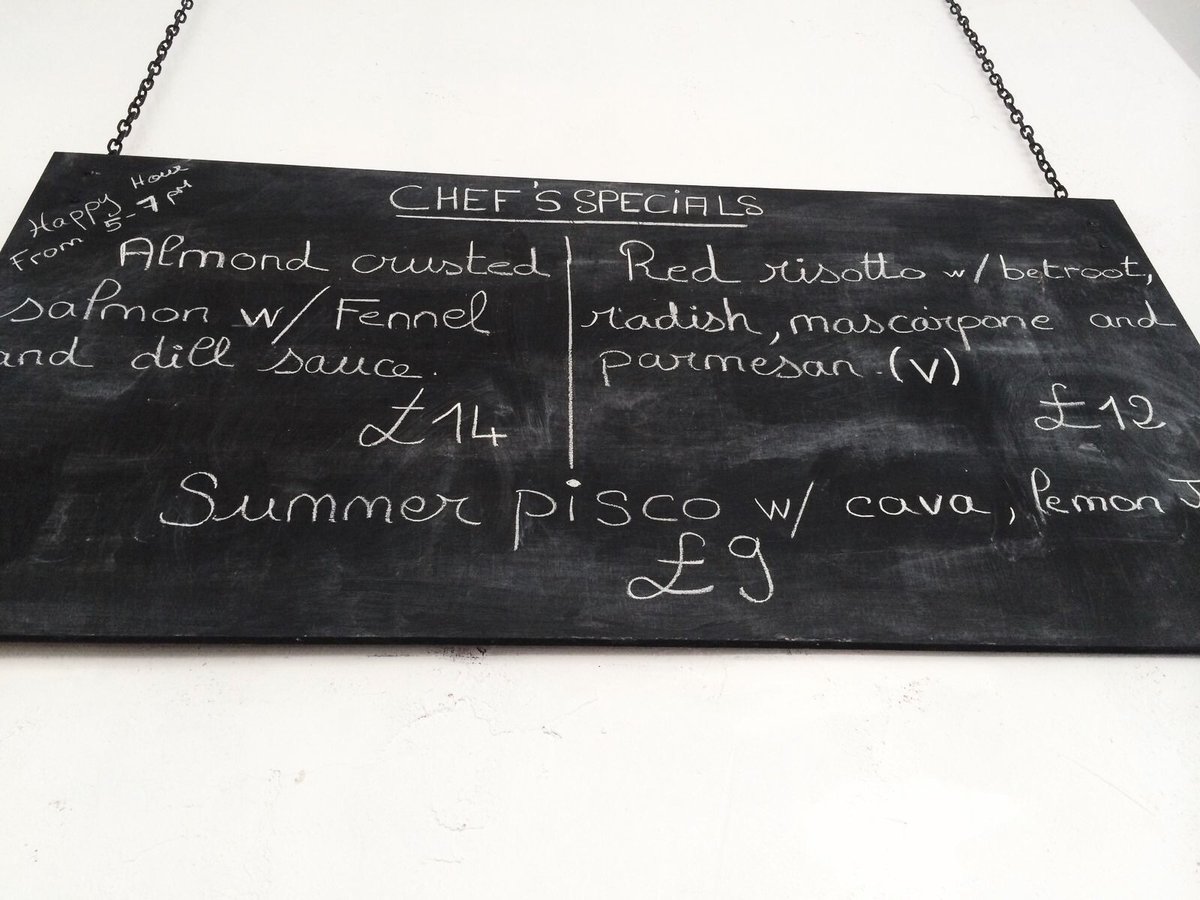 Happy Hour
From 5-7 PM
CHEF'S SPECiALS
Almond crusted
salmon w/ Fennel
and dill sauce.
£14
Red risotto w/ betroot,
radish, mascarpone and
parmesan.(V)
£12
Summer pisco w/ cava, lemon
£9